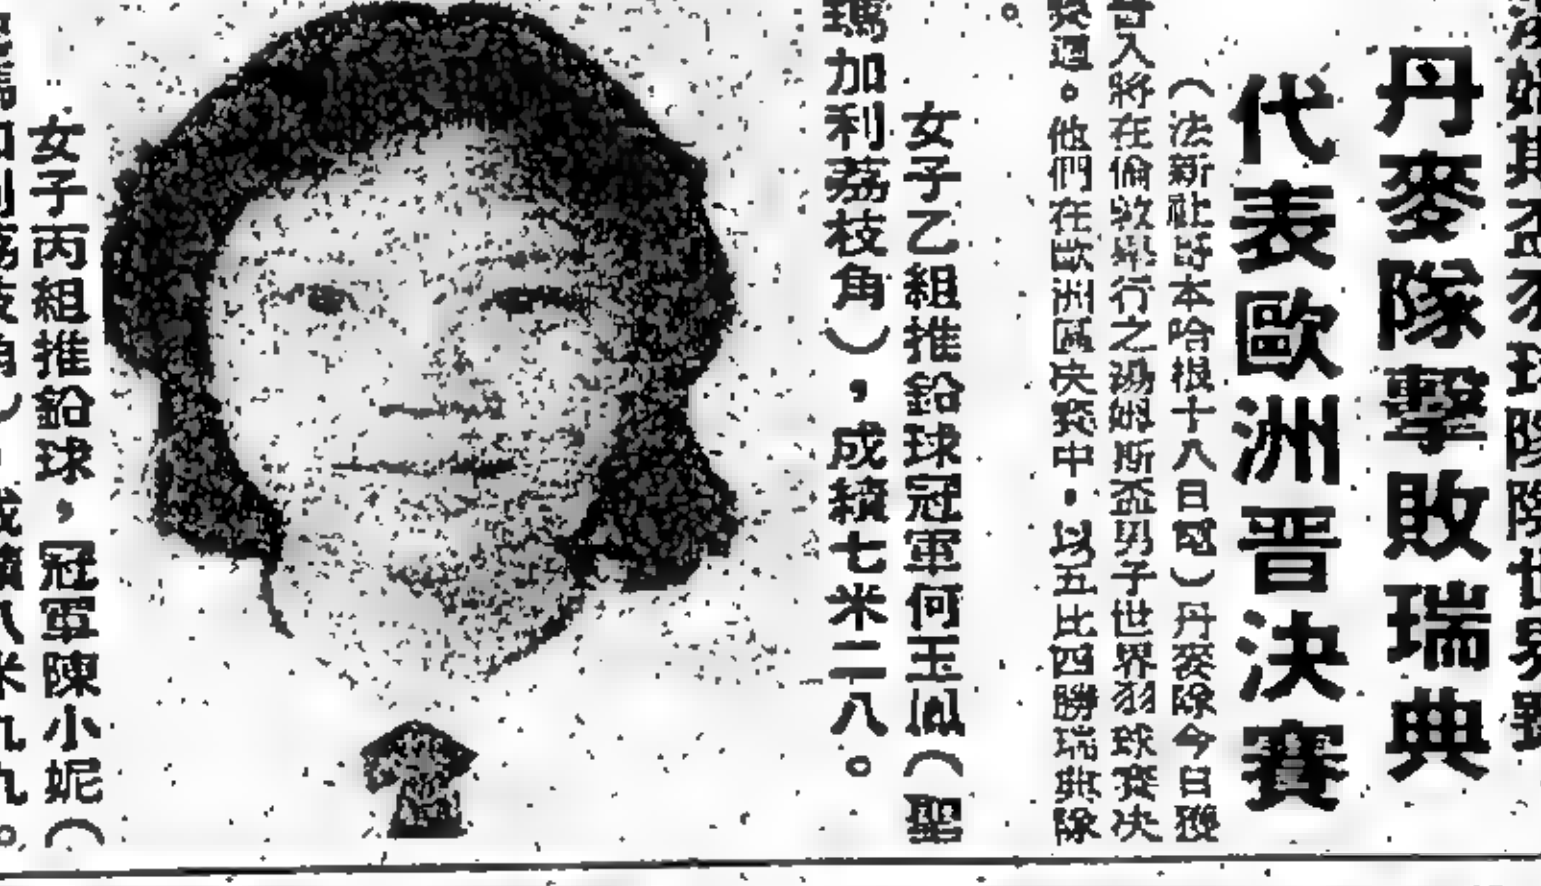 丹麥隊擊敗瑞典
代表歐洲晋決賽
(法新社哥本哈根十八日電)丹麥隊今日獲
晋入將在倫敦舉行之湯姆斯盃男子世界羽球賽决
賽週。他們在歐洲區决賽中,以五比四勝瑞典隊
。
女子乙組推鉛球冠軍何玉鳳(聖
瑪加利荔枝角),成績七米二八。
女子丙組推鉛球,冠軍陳小妮(
瑪加利荔枝角),成績八米九九。